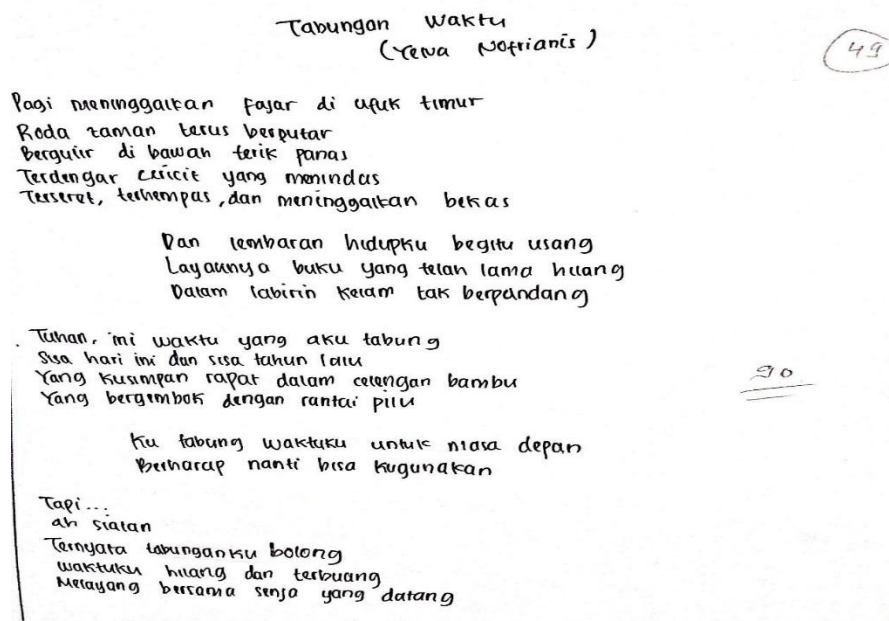 Tabungan Waktu
(Yena Nofrianis)
49
Pagi meninggalkan fajar di ufuk timur
Roda zaman terus berputar
Bergulir di bawah terik panas
Terdengar cericit yang menindas
Terseret, terhempas, dan meninggalkan bekas
Dan lembaran hidupku begitu usang
Layaknya buku yang telah lama hilang
Dalam labirin kelam tak berpandang
Tuhan, ini waktu yang aku tabung
Sisa hari ini dan sisa tahun lalu
Yang kusimpan rapat dalam celengan bambu
Yang bergembok dengan rantai pilu
90
Ku tabung waktuku untuk masa depan
Berharap nanti bisa kugunakan
Tapi...
ah sialan
Ternyata tabunganku bolong
waktuku hilang dan terbuang
Melayang bersama senja yang datang